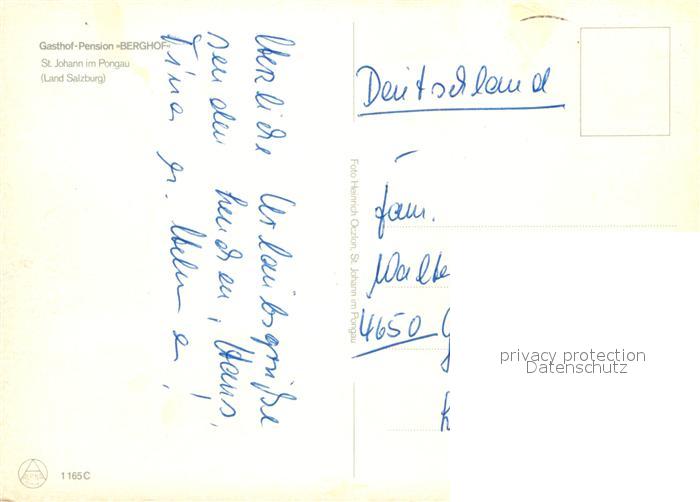 Gasthof-Pension »BERGHOF«
St. Johann im Pongau
(Land Salzburg)
Herzliche Urlaubsgrüße
senden Hans,
Tina
Foto Heinrich Oczlon, St. Johann im Pongau
Deutschland
Fam.
Walte
4650 G
K
privacy protection
Datenschutz
1165C